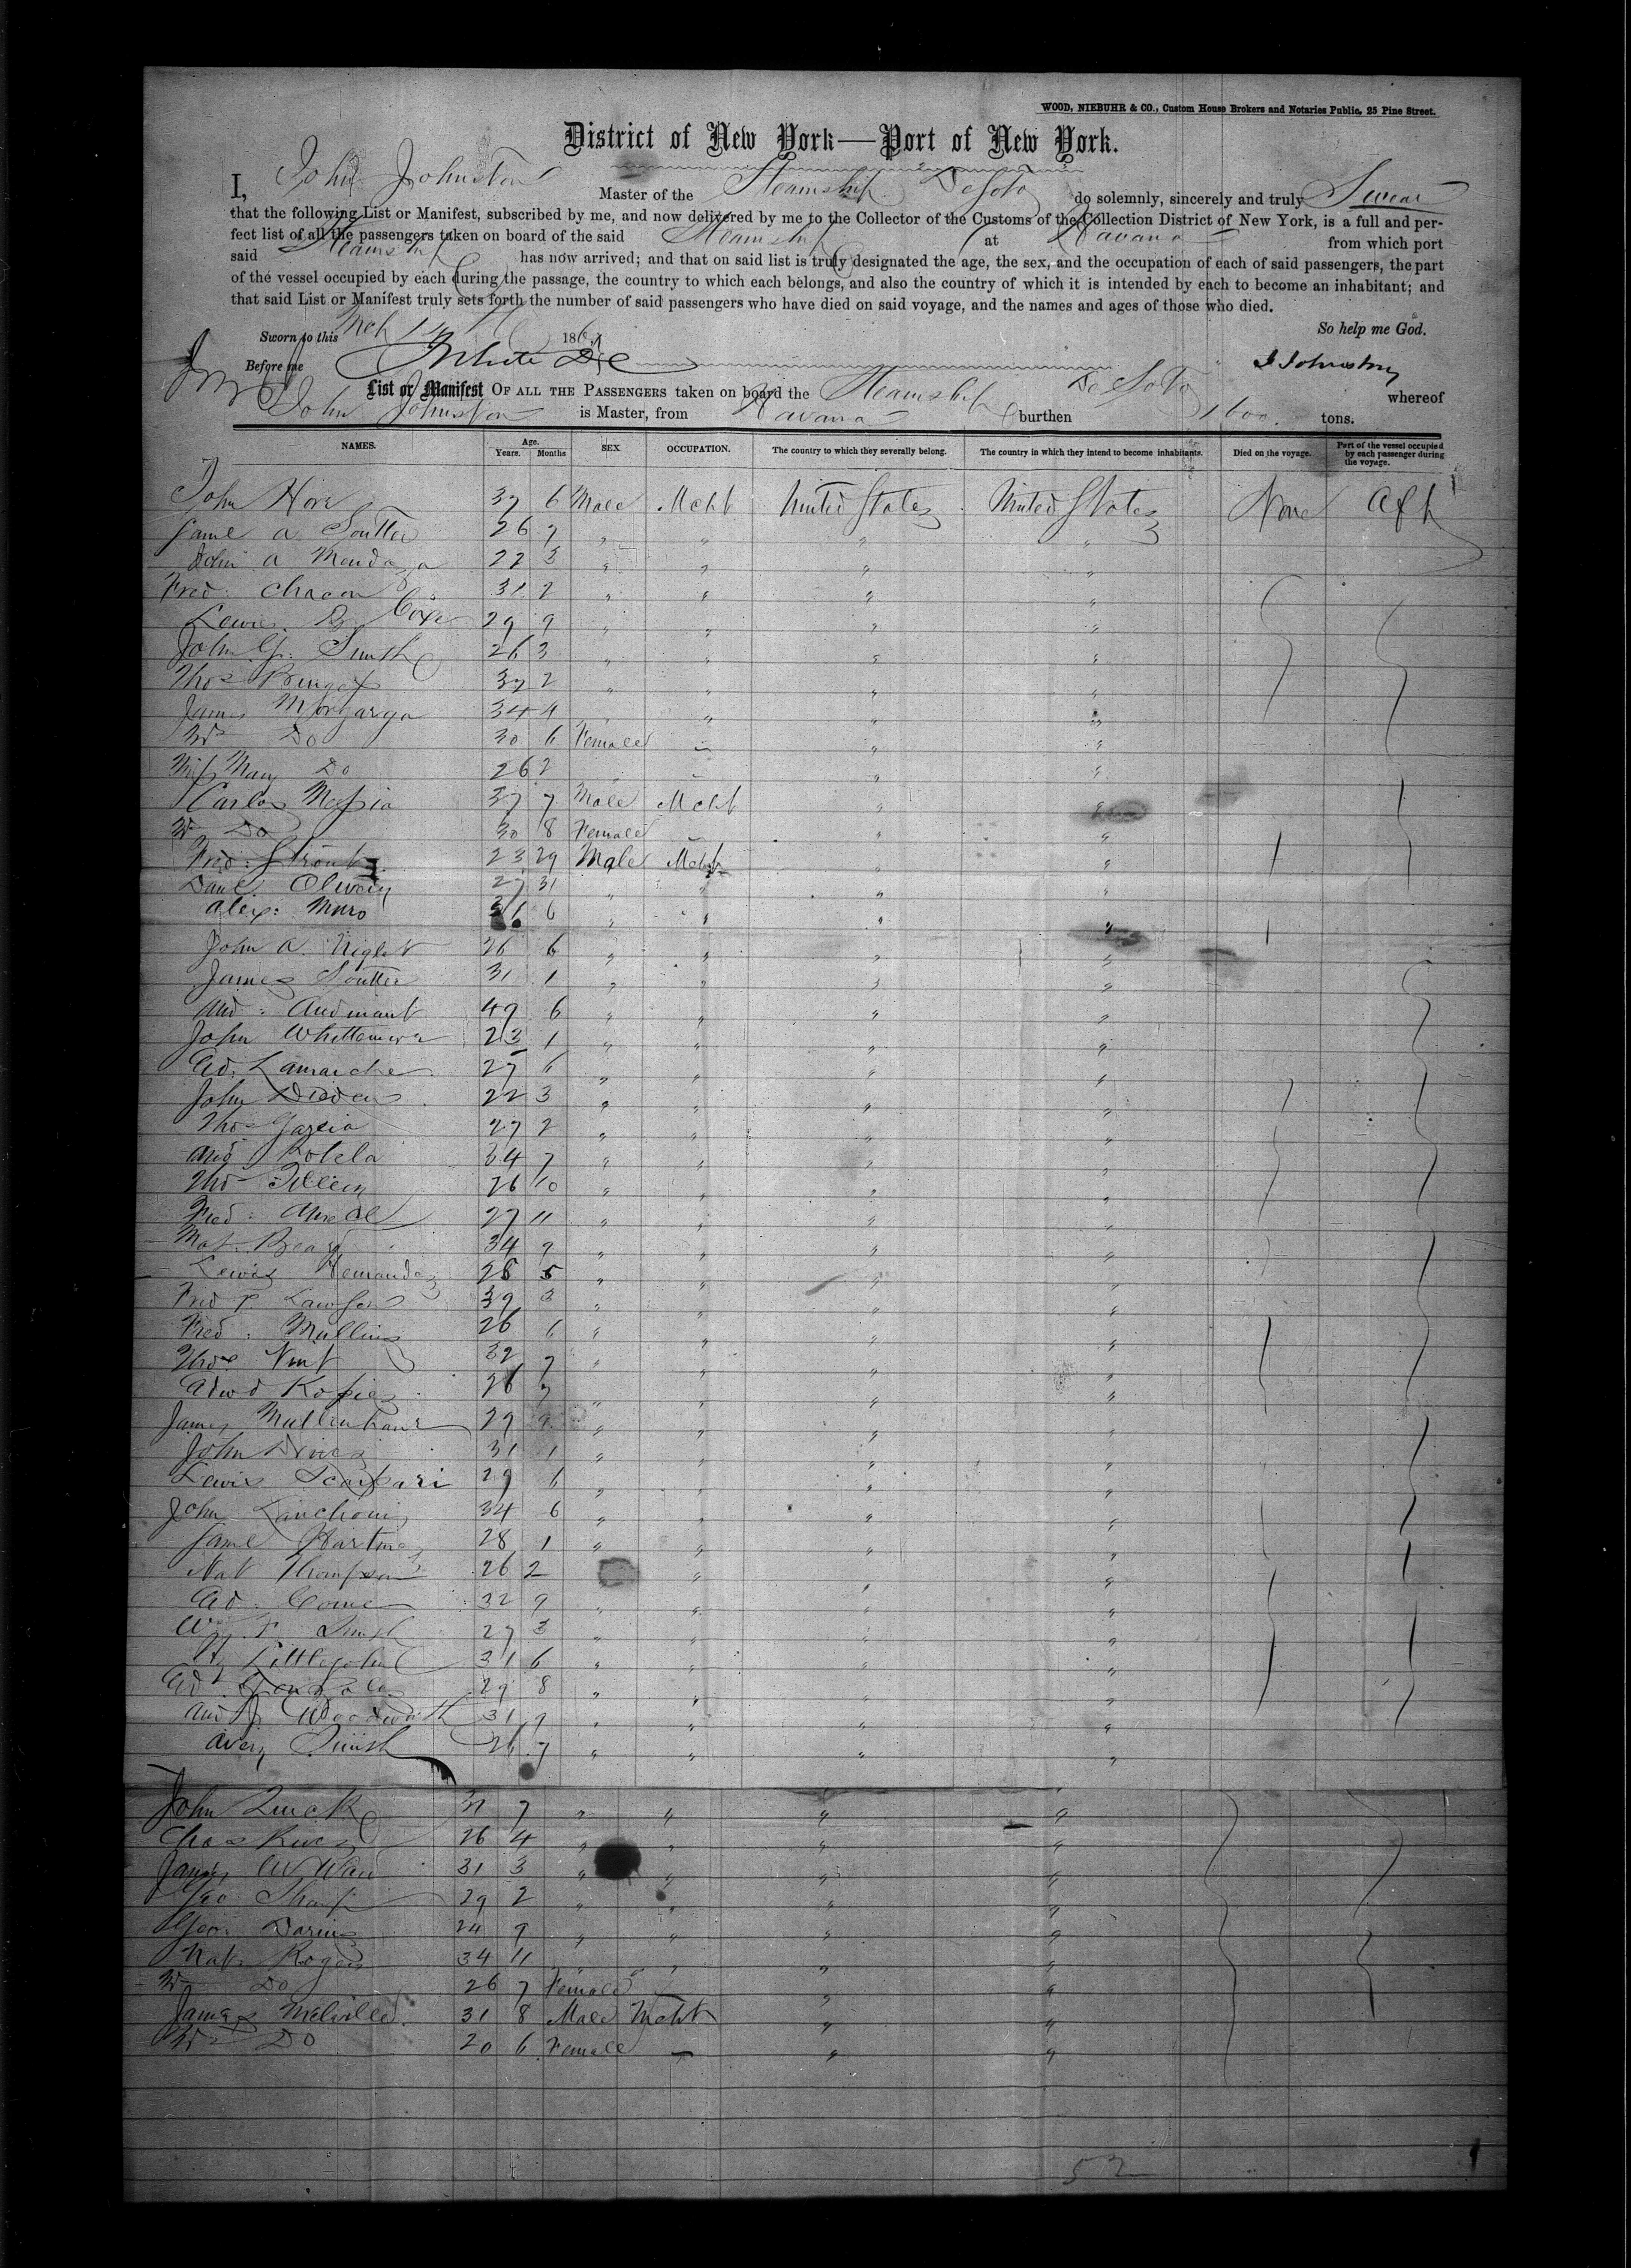 WOOD, NIEBUHR & CO., Custom House Brokers and Notaries Public, 25 Pine Street.
District of New York—Port of New York.
I, John Johnston Master of the Steamship DeSoto do solemnly, sincerely and truly Swear
that the following List or Manifest, subscribed by me, and now delivered by me to the Collector of the Customs of the Collection District of New York, is a full and per-
fect list of all the passengers taken on board of the said Steamship at Havana from which port
said Steamship has now arrived; and that on said list is truly designated the age, the sex, and the occupation of each of said passengers, the part
of the vessel occupied by each during the passage, the country to which each belongs, and also the country of which it is intended by each to become an inhabitant; and
that said List or Manifest truly sets forth the number of said passengers who have died on said voyage, and the names and ages of those who died.
Sworn to this Mch 14 186 So help me God.
Before me White DC J Johnston
List or Manifest OF ALL THE PASSENGERS taken on board the Steamship De Soto whereof
John Johnston is Master, from Havana burthen 1600 tons.
NAMES. Age. Years. Months SEX OCCUPATION. The country to which they severally belong. The country in which they intend to become inhabitants. Died on the voyage. Part of the vessel occupied by each passenger during the voyage.
John Hore 37 6 Male Mcht United States United States None Aft
Saml A Soutter 26 7 " " " "
John A Mendoza 22 3 " " " "
Fred: Chacon 31 2 " " " "
Lewis B Coxe 29 9 " " " "
John G. Smith 26 3 " " " "
Thos 37 2 " " " "
James 34 4 " " " "
Mrs Do 30 6 Female - " "
Miss Mary Do 26 2 " "
Carlos Messia 37 7 Male Mcht " "
Mrs Do 30 8 Female - " "
Fred: 23 29 Male Mcht " "
Danl 27 31 " " " "
Alex: Muro 31 6 " " " "
John A. 26 6 " " " "
James Soutter 31 1 " " " "
And: Audinant 49 6 " " " "
John Whittemore 23 1 " " " "
Ad: Lamarche 27 6 " " " "
John 22 3 " " " "
Thos Garcia 27 2 " " " "
And Kotela 34 7 " " " "
Thos 26 10 " " " "
Fred: 27 11 " " " "
Mat. 34 9 " " " "
Lewis Hernandez 28 5 " " " "
Fred P. Lawson 39 3 " " " "
Fred: Mullins 26 6 " " " "
Thos 32 7 " " " "
Edwd 26 7 " " " "
James 29 9 " " " "
John 31 1 " " " "
Lewis Scarpari 29 6 " " " "
John 34 6 " " " "
Saml 28 1 " " " "
Nat Thompson 26 2 " " "
Ad: 32 9 " " " "
Wm F. Smith 27 3 " " " "
Hy Littlejohn 31 6 " " " "
Ad Gonzales 29 8 " " " "
And J. Woodworth 31 9 " " " "
Avery Smith 26 7 " " " "
John Quick 31 7 " " " "
Chas 26 4 " " " "
James W Wall 31 3 " " " "
Geo Sharp 29 2 " " " "
Geo: Darius 24 9 " " " "
Nat. Rogers 34 11 " " " "
Mrs Do 26 7 Female - " "
James Melville 31 8 Male Mcht " "
Mrs Do 20 6 Female - " "
52